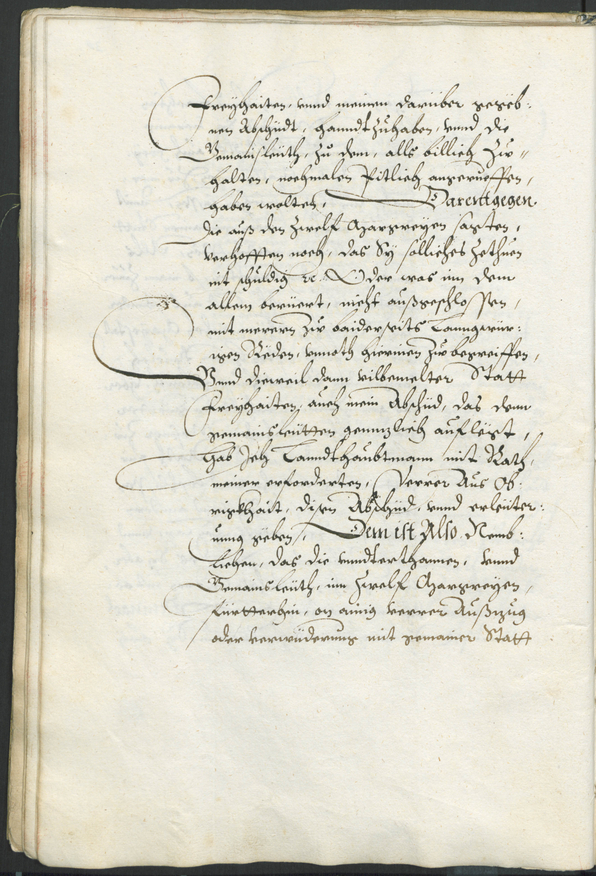 Freyhaiten, vnnd meinen darüber gegeb:
nen Abschidt, hanndtzuhaben, vnnd die
Gemainsleüth, zu dem, alls billich zu
halten, nochmalen Pitlich angerueffen,
haben wolten, Darentgegen
die auß den Zwelf Margreyen sagten,
verhofften noch, das Sy solliches Zethuen
nit schuldig etc. Oder was inn dem
allem beruert, nicht außgeschlossen,
mit mererm Zu baiderseits lanngwir:
igen Reden, vnnoth hierinen Zubegreiffen,
Vnnd dieweil dann vilbemelter Statt
Freyhaiten, auch mein Abschid, das denn
gemainsleütten genntzlich auflegt,
Hab Ich Lanndtshaubtmann mit Rath,
meiner erforderten, Verrer Aus Ob:
rigkhait, disen Abschid, vnnd erleüter:
ung geben, Dem ist Also Nemb:
lichen, das die vnndterthanen, vnnd
Gemainsleüth, inn Zwelf Margreyen,
fürtterhin, on ainig verrer Außzug
oder verwiderung mit gemainer Statt